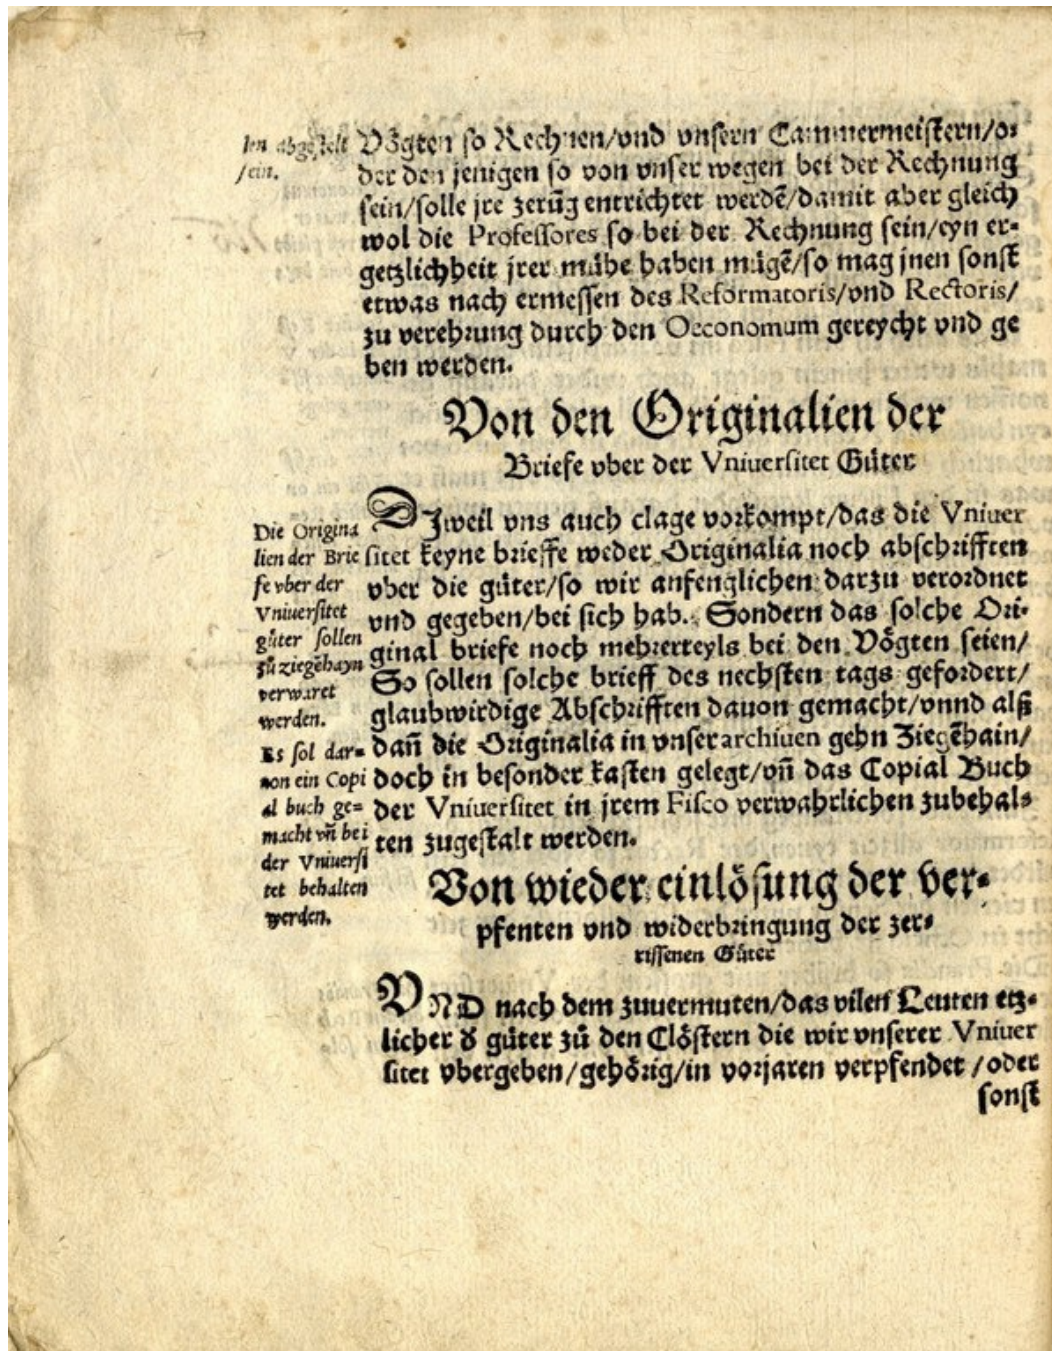 len abgestelt
sein.
Vögten so Rechnen/vnd vnsern Cammermeistern/o⸗
der den jenigen so von vnser wegen bei der Rechnung
sein/solle jre zerũg entrichtet werdẽ/damit aber gleich
wol die Professores so bei der Rechnung sein/eyn er⸗
getzlichheit jrer mühe haben mügẽ/so mag jnen sonst
etwas nach ermessen des Reformatoris/vnd Rectoris/
zu verehrung durch den Oeconomum gereycht vnd ge
ben werden.
Von den Originalien der
Briefe vber der Vniuersitet Güter
Die Origina
lien der Brie
fe vber der
Vniuersitet
güter sollen
zů ziegẽhayn
verwaret
werden.
Es sol dar⸗
uon ein Copi
al buch ge⸗
macht vñ bei
der Vniuersi
tet behalten
werden.
DJweil vns auch clage vorkompt/das die Vniuer
sitet keyne brieffe weder Originalia noch abschrifften
vber die güter/so wir anfenglichen darzu verordnet
vnd gegeben/bei sich hab. Sondern das solche Ori⸗
ginal briefe noch mehrerteyls bei den Vögten seien/
So sollen solche brieff des nechsten tags gefordert/
glaubwirdige Abschrifften dauon gemacht/vnnd alß
dañ die Originalia in vnser archiuen gehn Ziegẽhain/
doch in besonder kasten gelegt/vñ das Copial Buch
der Vniuersitet in jrem Fisco verwahrlichen zubehal⸗
ten zugestalt werden.
Von wieder einlösung der ver⸗
pfenten vnd widerbringung der zer⸗
rissenen Güter
VND nach dem zuuermuten/das vilen Leuten etz⸗
licher d̕ güter zů den Clöstern die wir vnserer Vniuer
sitet vbergeben/gehörig/in vorjaren verpfendet/oder
sonst